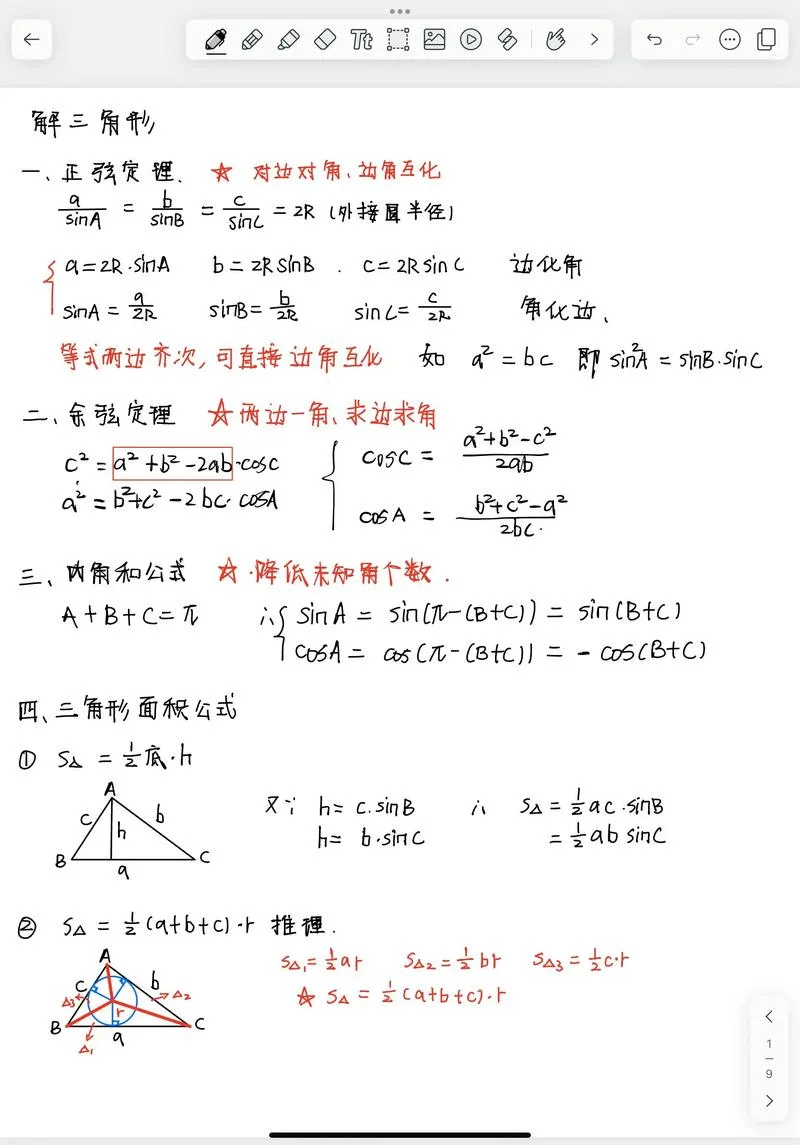 Tt
解三角形
一、正弦定理. ☆ 对边对角、边角互化
a/sinA = b/sinB = c/sinC = 2R (外接圆半径)
a=2R·sinA b=2RsinB . c=2RsinC 边化角
sinA=a/2R sinB=b/2R sinC=c/2R 角化边、
等式两边齐次, 可直接边角互化 如 a²=bc 即 sin²A=sinB·sinC
二、余弦定理 ☆两边一角、求边求角
c²=a²+b²-2ab·cosc cosC = (a²+b²-c²)/2ab
a²=b²+c²-2bc·cosA cosA = (b²+c²-a²)/2bc·
三、内角和公式 ☆·降低未知角个数.
A+B+C=π ∴ sinA = sin(π-(B+C)) = sin(B+C)
cosA = cos(π-(B+C)) = -cos(B+C)
四、三角形面积公式
① S△ = ½底·h
A
c h b
B a C
又∵ h= c·sinB ∴ S△=½ac·sinB
h= b·sinC =½ab sinC
② S△ = ½(a+b+c)·r 推理.
S△₁=½ar S△₂=½br S△₃=½c·r
☆ S△ = ½(a+b+c)·r
A
c b
△₃ r △₂
B a C
△₁
1
9